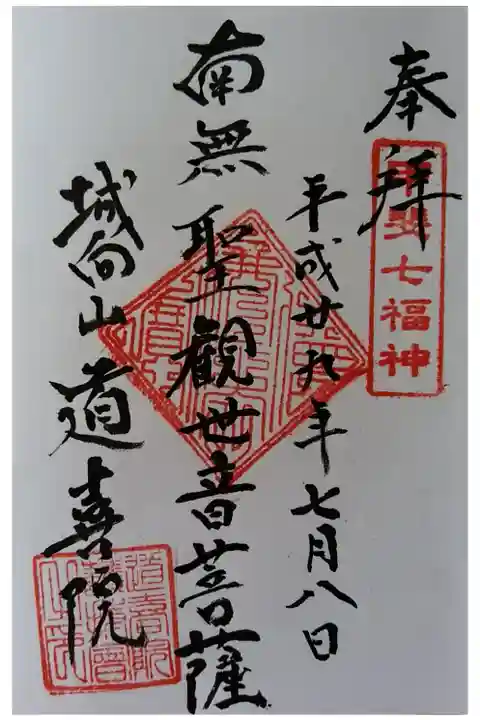 奉拝
甲斐七福神
平成廿九年七月八日
南無聖觀世音菩薩
城向山道喜院